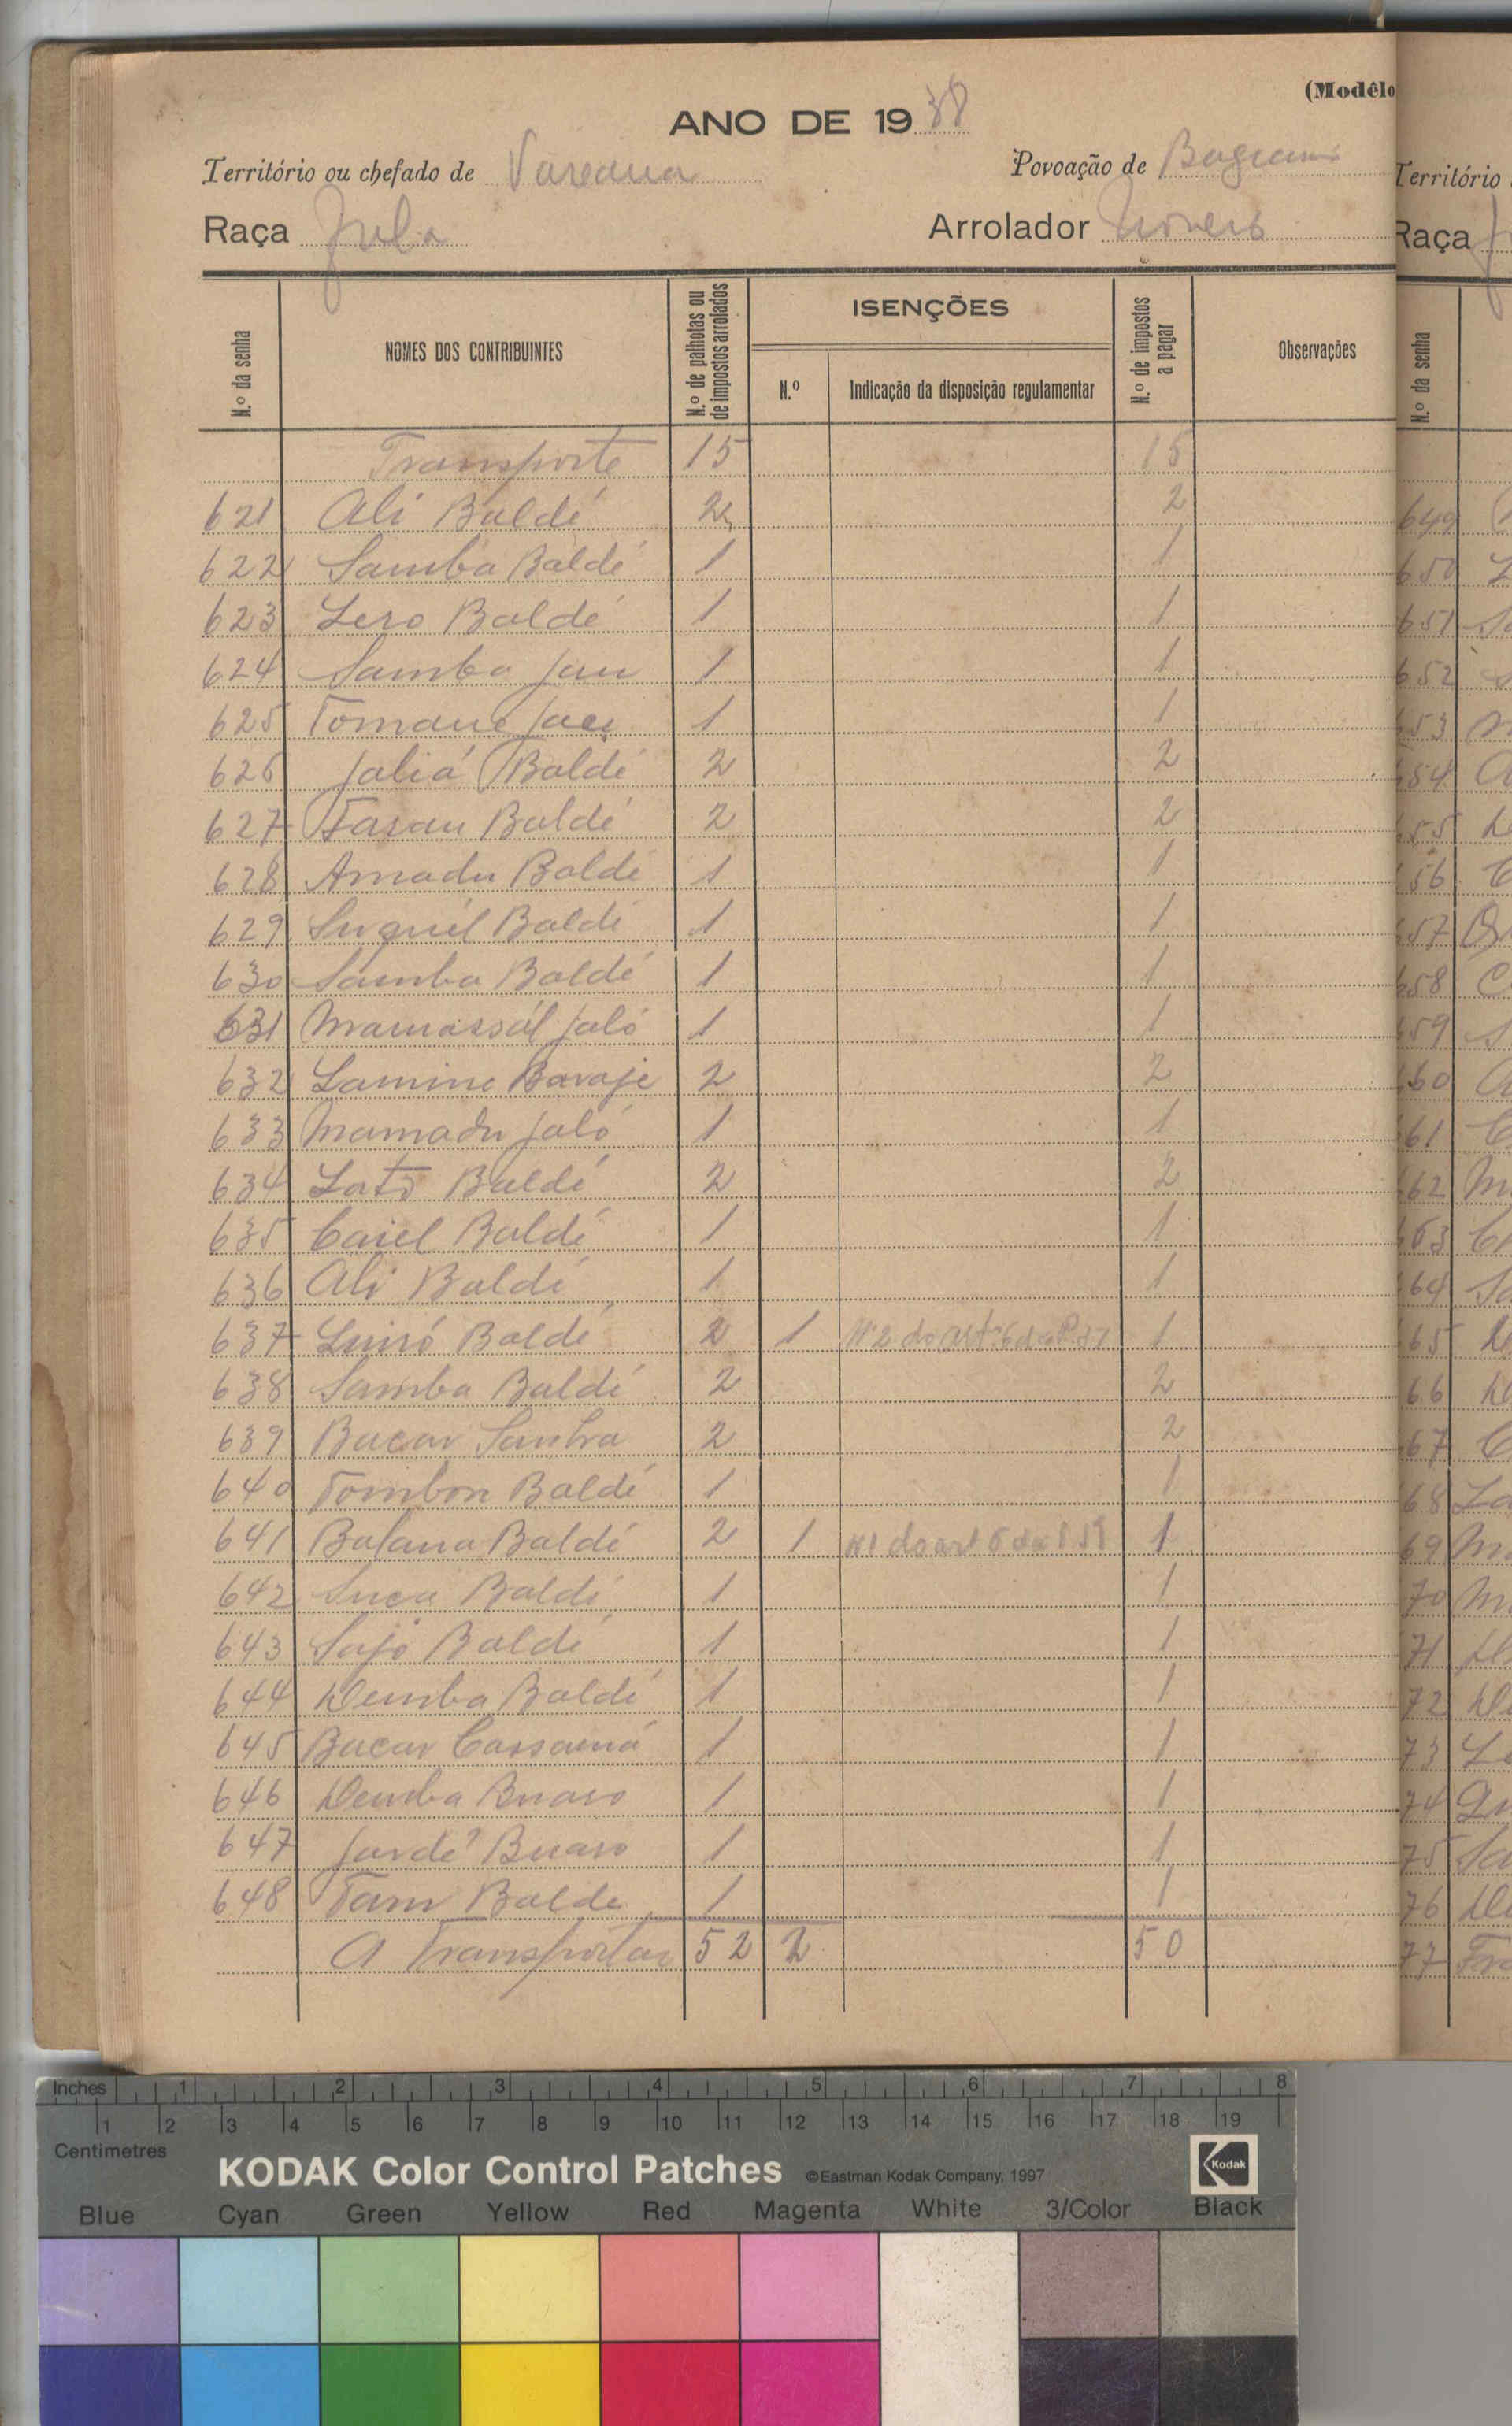 (Modêlo
ANO DE 1938
Território ou chefado de
Povoação de
Raça Fula
Arrolador
N.º da senha
NOMES DOS CONTRIBUINTES
N.º de palhotas ou de impostos arrolados
ISENÇÕES
N.º
Indicação da disposição regulamentar
N.º de impostos a pagar
Observações
Transporte 15 15
621 Ali Baldé 2 2
622 Samba Baldé 1 1
623 Lero Baldé 1 1
624 Samba Jau 1 1
625 1 1
626 Jaliá Baldé 2 2
627 Baldé 2 2
628 Amadu Baldé 1 1
629 Baldé 1 1
630 Samba Baldé 1 1
631 Mamassál Jaló 1 1
632 Lamine 2 2
633 Mamadu Jaló 1 1
634 Baldé 2 2
635 Caiel Baldé 1 1
636 Ali Baldé 1 1
637 Baldé 2 1 Nº2 do artº 6 1
638 Samba Baldé 2 2
639 Bacar 2 2
640 Tombon Baldé 1 1
641 Baldé 2 1 Nº1 do art 6 1
642 Baldé 1 1
643 Sajo Baldé 1 1
644 Demba Baldé 1 1
645 Bacar Cassamá 1 1
646 Demba Buaro 1 1
647 Buaro 1 1
648 Tam Balde 1 1
A Transportar 52 2 50
Território
Raça
N.º da senha
649
650
651
652
53
54
55
56
57
58
59
60
61
62
63
64
65
66
67
68
69
70
71
72
73
74
75
76
77
Inches 1 2 3 4 5 6 7 8
1 2 3 4 5 6 7 8 9 10 11 12 13 14 15 16 17 18 19
Centimetres
KODAK Color Control Patches ©Eastman Kodak Company, 1997 Kodak
Blue Cyan Green Yellow Red Magenta White 3/Color Black